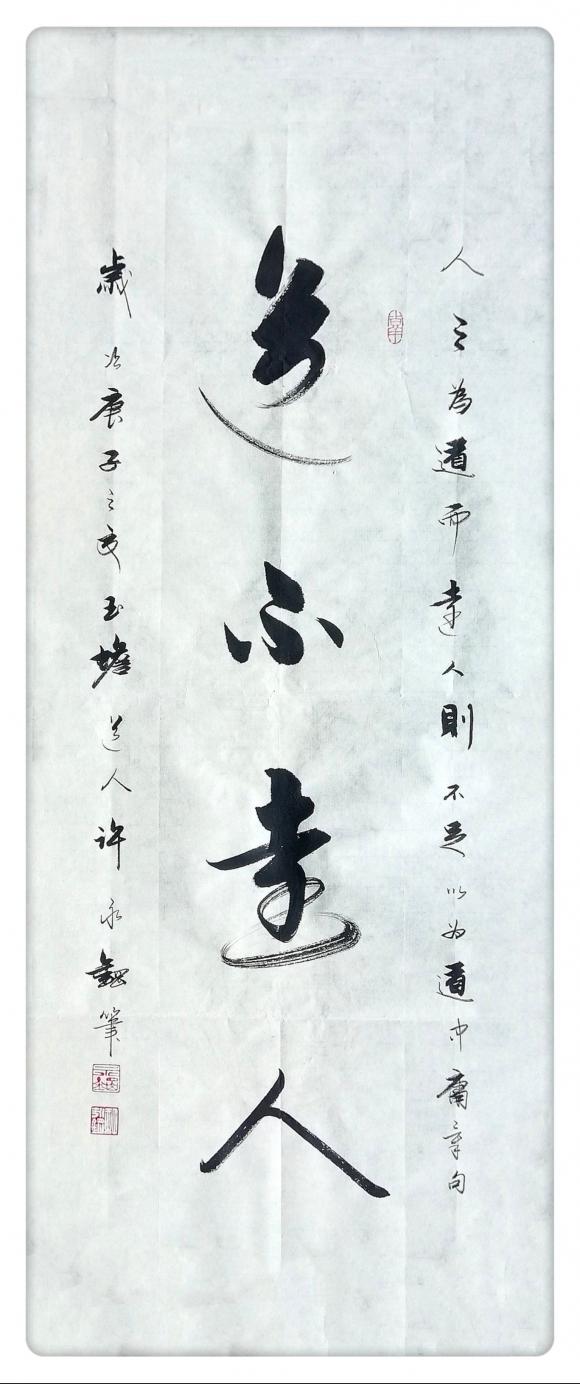 人之為道而遠人則不足以為道中庸章句
道不遠人
歲次庚子之夏玉蟾道人許永鑫筆